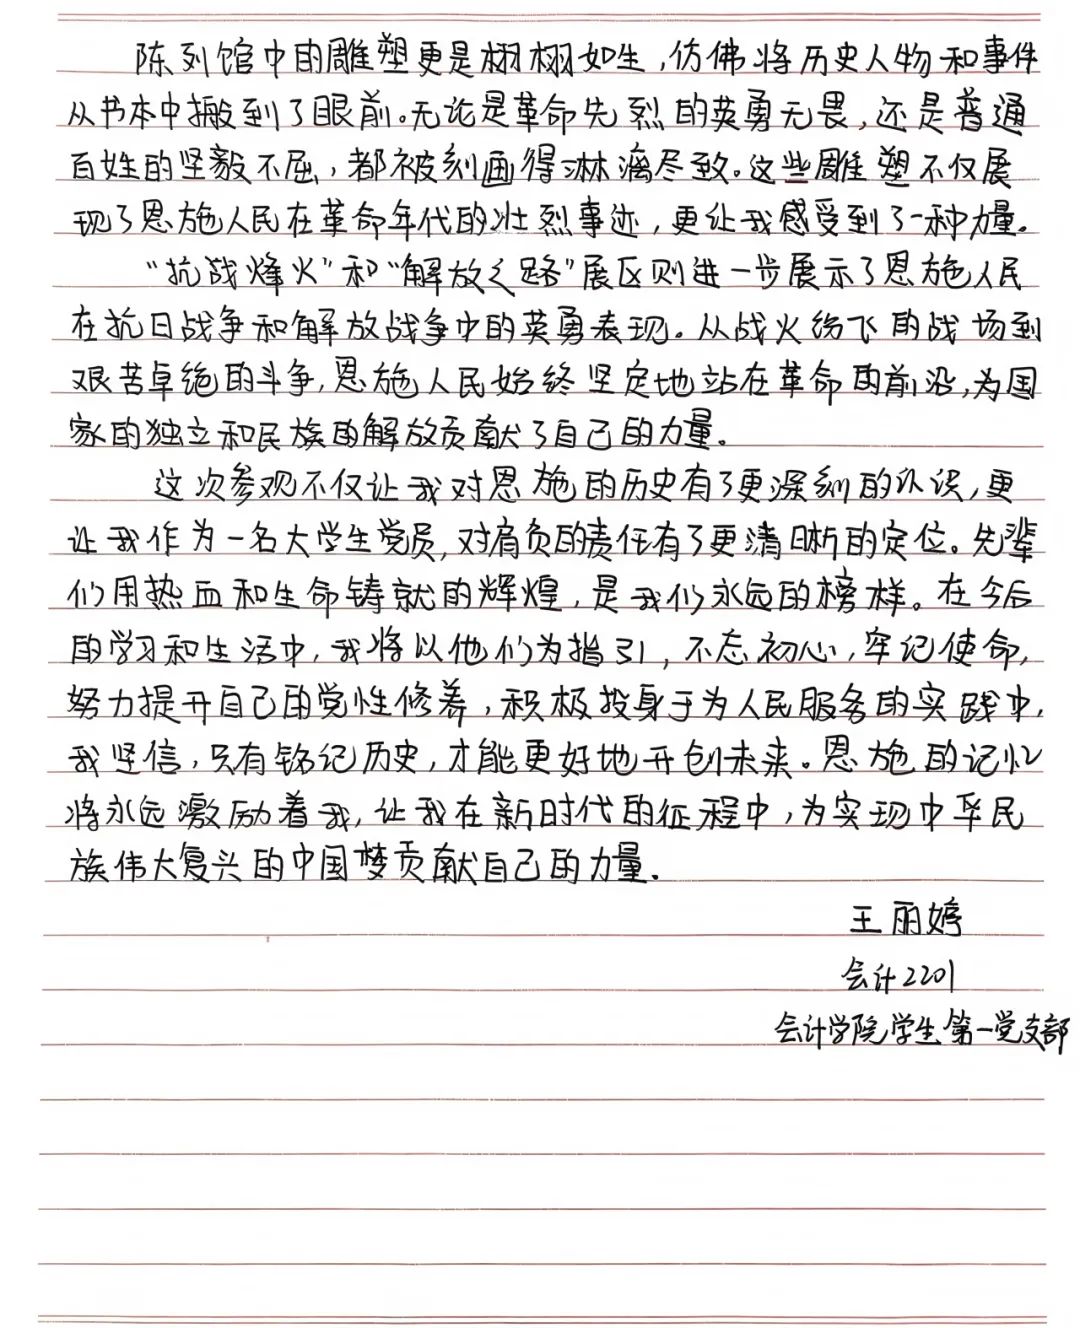 陈列馆中的雕塑更是栩栩如生,仿佛将历史人物和事件
从书本中搬到了眼前。无论是革命先烈的英勇无畏,还是普通
百姓的坚毅不屈,都被刻画得淋漓尽致。这些雕塑不仅展
现了恩施人民在革命年代的壮烈事迹,更让我感受到了一种力量。
“抗战烽火”和“解放之路”展区则进一步展示了恩施人民
在抗日战争和解放战争中的英勇表现。从战火纷飞的战场到
艰苦卓绝的斗争,恩施人民始终坚定地站在革命的前沿,为国
家的独立和民族的解放贡献了自己的力量。
这次参观不仅让我对恩施的历史有了更深刻的认识,更
让我作为一名大学生党员,对肩负的责任有了更清晰的定位。先辈
们用热血和生命铸就的辉煌,是我们永远的榜样。在今后
的学习和生活中,我将以他们为指引,不忘初心,牢记使命,
努力提升自己的党性修养,积极投身于为人民服务的实践中,
我坚信,只有铭记历史,才能更好地开创未来。恩施的记忆
将永远激励着我,让我在新时代的征程中,为实现中华民
族伟大复兴的中国梦贡献自己的力量.
王丽婷
会计2201
会计学院学生第一党支部